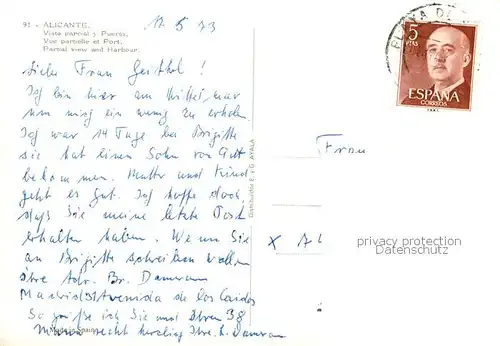 91 - ALICANTE.
Vista parcial y Puerto.
Vue partielle et Port.
Partial view and Harbour.
17.5.73
PLAYA DE
5
PTAS
ESPAÑA
CORREOS
Liebe Frau
Ich bin hier am
um mich ein wenig zu erholen.
Ich war 14 Tage bei Brigitte
sie hat einen Sohn von Gott
bekommen. Mutter und Kind
geht es gut. Ich hoffe doch
daß Sie meine letzte Post
erhalten haben. Wenn Sie
an Brigitte schreiben wollen
ihre Adr. Br. Damran
Madrid 31 Avenida de los Caidos
38
So grüße ich Sie und Ihren
recht herzlig Ihre L. Damran
Distribuidor E. y G. AYALA
Frau
x 74
privacy protection
Datenschutz